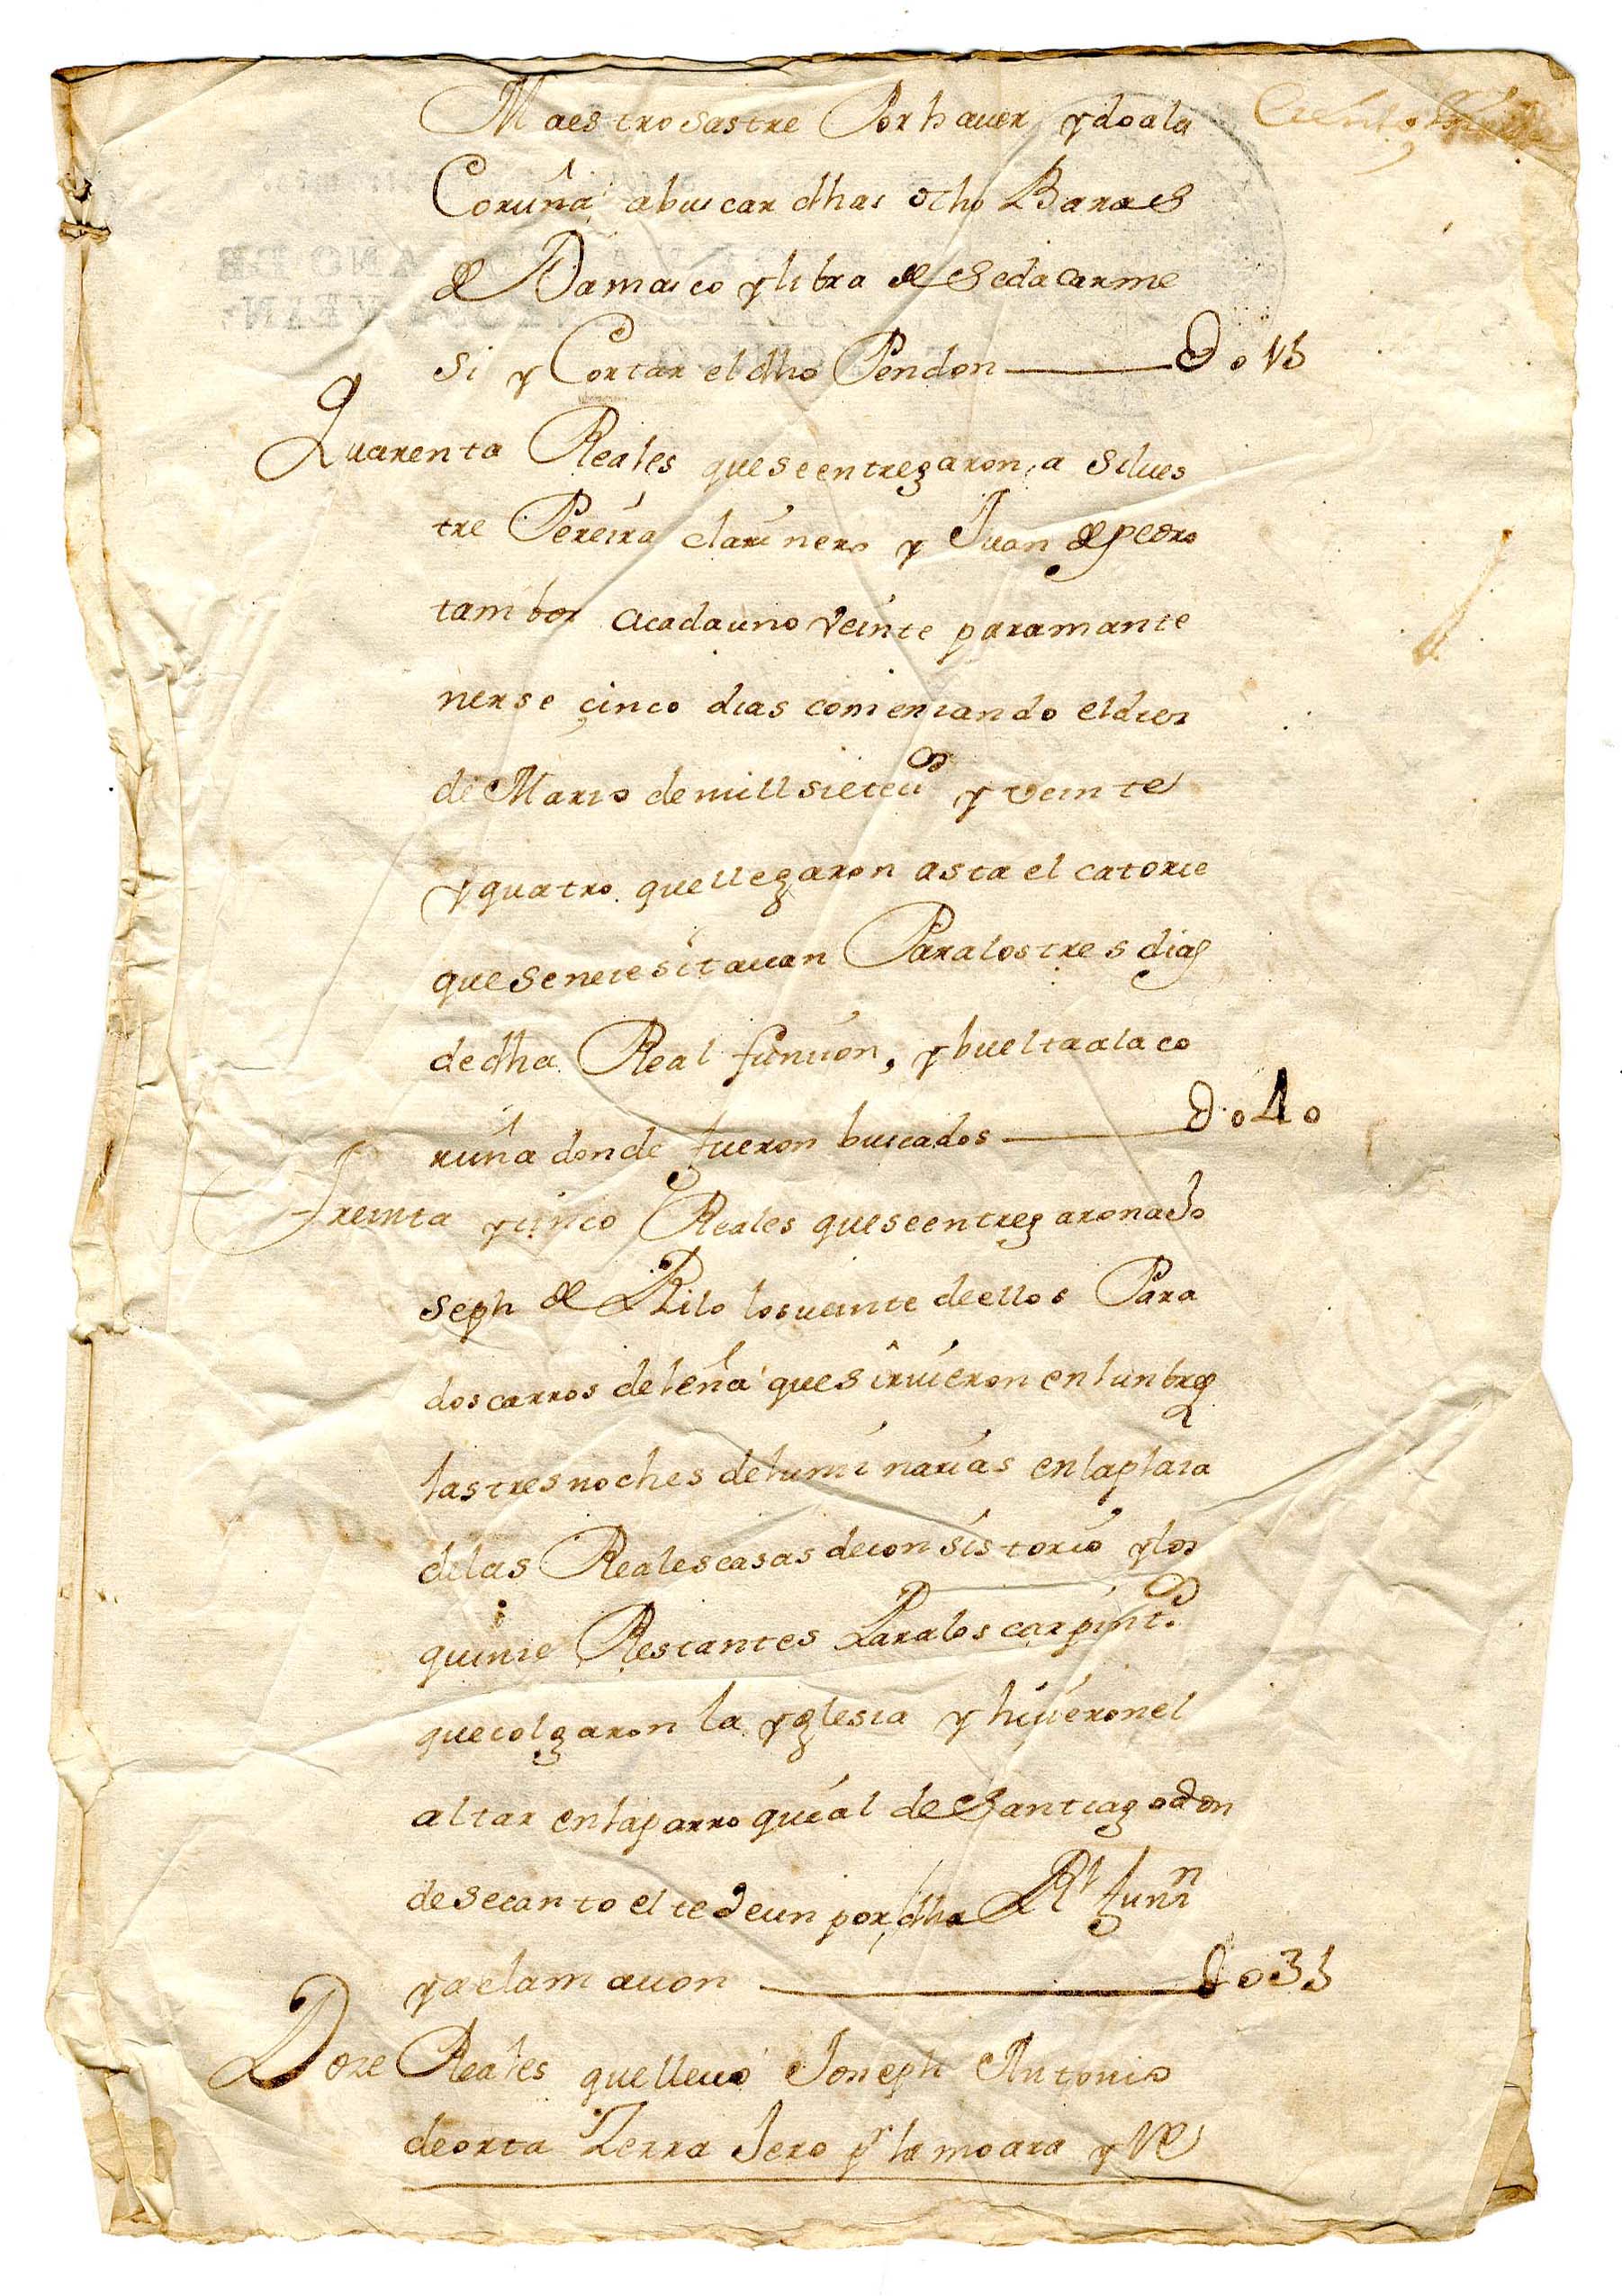 Maestro sastre Por hauer ydo a la
Coruña a buscar dhas ocho Baras
de Damasco y libra de Seda carme
si y Cortar el dho Pendon — D 015
Quarenta Reales que se entregaron a Silues
tre Pereira clarinero y Juan de pedro
tambor a cada uno veinte para mante
nerse çinco dias comenzando el diez
de Marzo de mill sietecos y veinte
y quatro que llegaron asta el catorze
que se necesitauan Para los tres dias
de dha Real funcion, y buelta a la co
ruña donde fueron buscados — D 040
Treinta y cinco Reales que se entregaron a Jo
seph de Rilo los veinte de ellos Para
dos carros de leña que siruieron en lunbrar
las tres noches de luminarias en la plaza
de las Reales casas de consistorio y los
quinze Restantes Para los carpintos
que colgaron la yglesia y hicieron el
altar en la parroquial de Santiago don
de se canto el te deun por dha Rl funn
y aclamacion — D 035
Doze Reales que lleuo Joseph Antonio
de orta Zerrajero pr la moara y Ve